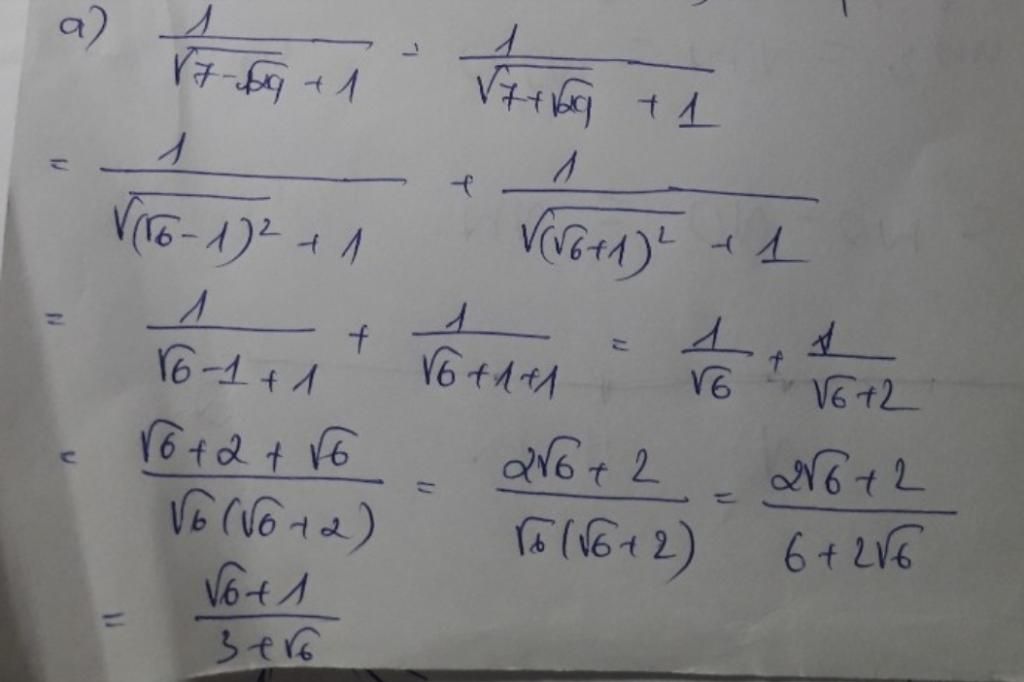 a) \frac{1}{\sqrt{7-\sqrt{24}}+1} - \frac{1}{\sqrt{7+\sqrt{24}}+1}
= \frac{1}{\sqrt{(\sqrt{6}-1)^2}+1} + \frac{1}{\sqrt{(\sqrt{6}+1)^2}+1}
= \frac{1}{\sqrt{6}-1+1} + \frac{1}{\sqrt{6}+1+1} = \frac{1}{\sqrt{6}} + \frac{1}{\sqrt{6}+2}
= \frac{\sqrt{6}+2+\sqrt{6}}{\sqrt{6}(\sqrt{6}+2)} = \frac{2\sqrt{6}+2}{\sqrt{6}(\sqrt{6}+2)} = \frac{2\sqrt{6}+2}{6+2\sqrt{6}}
= \frac{\sqrt{6}+1}{3+\sqrt{6}}